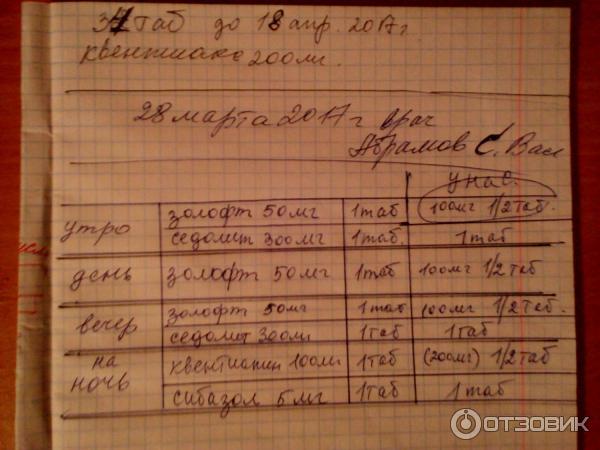 31 таб до 18 апр. 2017г
Квентиакс 200мг.
28 марта 2017 г врач
Абрамов С. Вал
У нас.
утро золофт 50мг 1таб 100мг 1/2 таб.
седолит 300мг 1таб. 1 таб
день золофт 50мг 1таб 100мг 1/2 таб
вечер золофт 50мг 1таб 100мг 1/2 таб.
седолит 300мг 1таб 1 таб
на ночь квентиапин 100мг 1таб (200мг) 1/2 таб
сибазол 5мг 1таб 1 таб
ОТЗОВИК